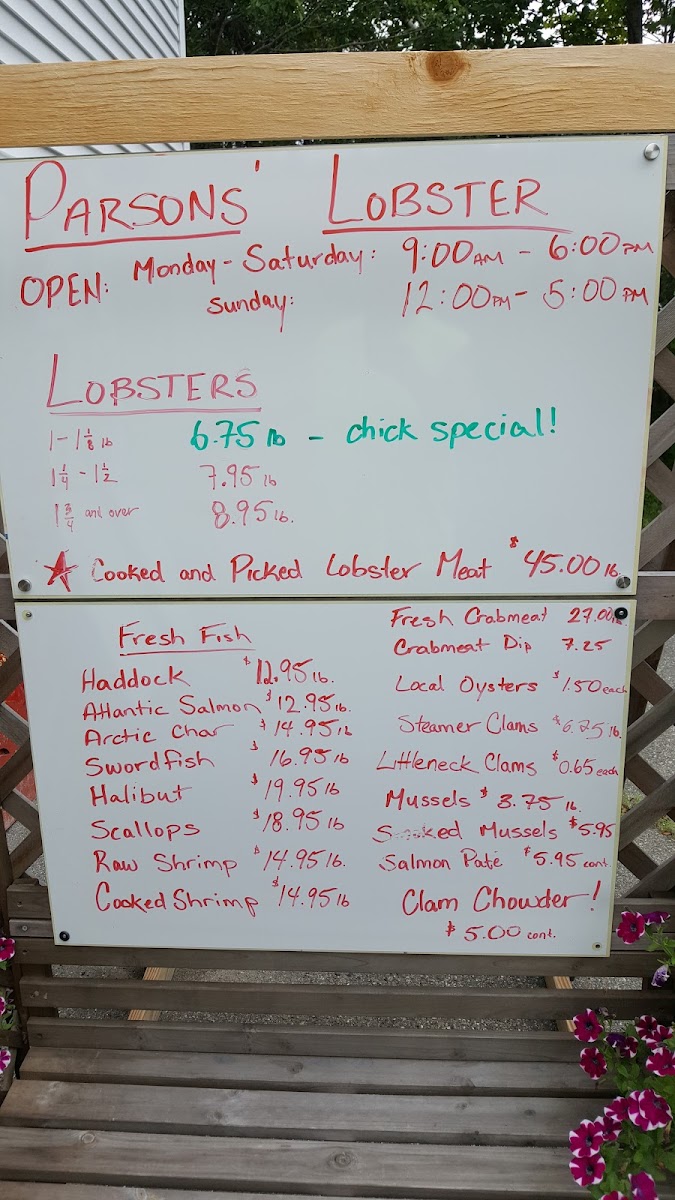 PARSONS' LOBSTER
OPEN: Monday - Saturday: 9:00 AM - 6:00 PM
Sunday: 12:00 PM - 5:00 PM
LOBSTERS
1 - 1 1/8 lb 6.75 lb - chick special!
1 1/4 - 1 1/2 7.95 lb
1 3/4 and over 8.95 lb.
★ Cooked and Picked Lobster Meat $45.00 lb.
Fresh Fish
Haddock $12.95 lb.
Atlantic Salmon $12.95 lb.
Arctic Char $14.95 lb
Swordfish $16.95 lb
Halibut $19.95 lb
Scallops $18.95 lb
Raw Shrimp $14.95 lb.
Cooked Shrimp $14.95 lb
Fresh Crabmeat 27.00
Crabmeat Dip 7.25
Local Oysters $1.50 each
Steamer Clams $6.75 lb.
Littleneck Clams $0.65 each
Mussels $3.75 lb.
Smoked Mussels $5.95
Salmon Paté $5.95 cont.
Clam Chowder!
$5.00 cont.